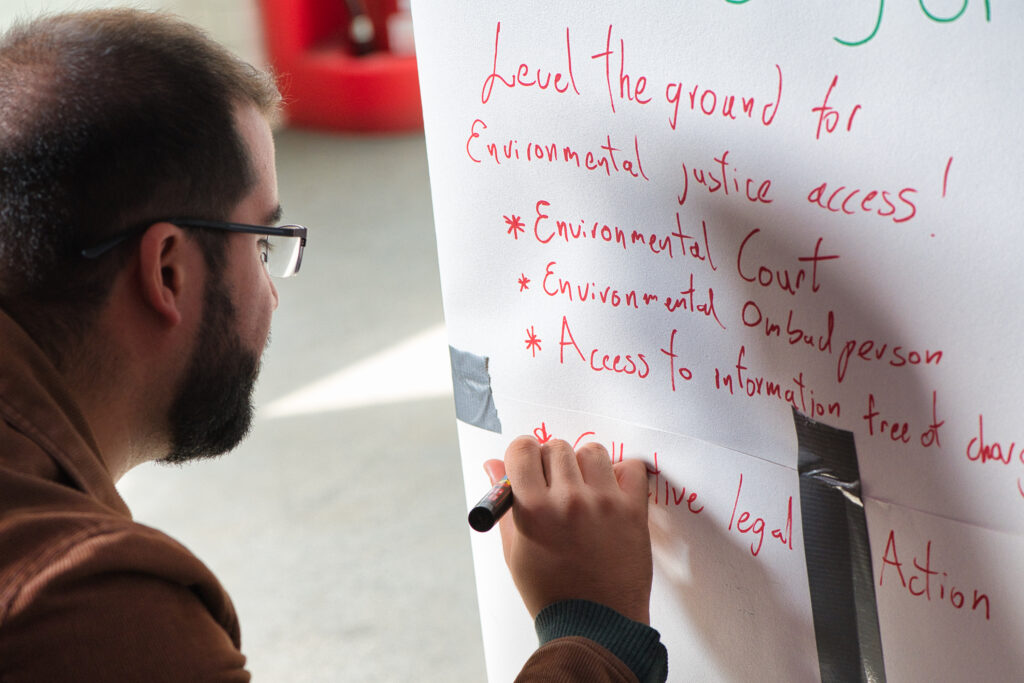 Level the ground for
Environmental justice access!
* Environmental Court
* Environmental Ombudperson
* Access to information free of
* legal Action